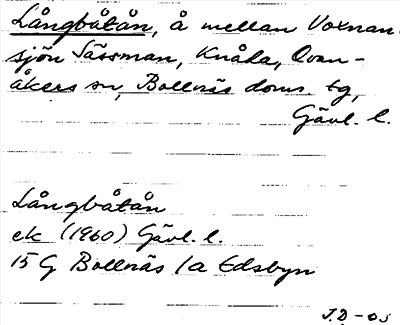 Långbåtån, å mellan Voxnan.
sjön Sässman, Knåda, Ovan-
åkers sn, Bollnäs doms. tg,
Gävl. l.
Långbåtån
ek (1960) Gävl. l.
15 G Bollnäs 1a Edsbyn
J.D -05